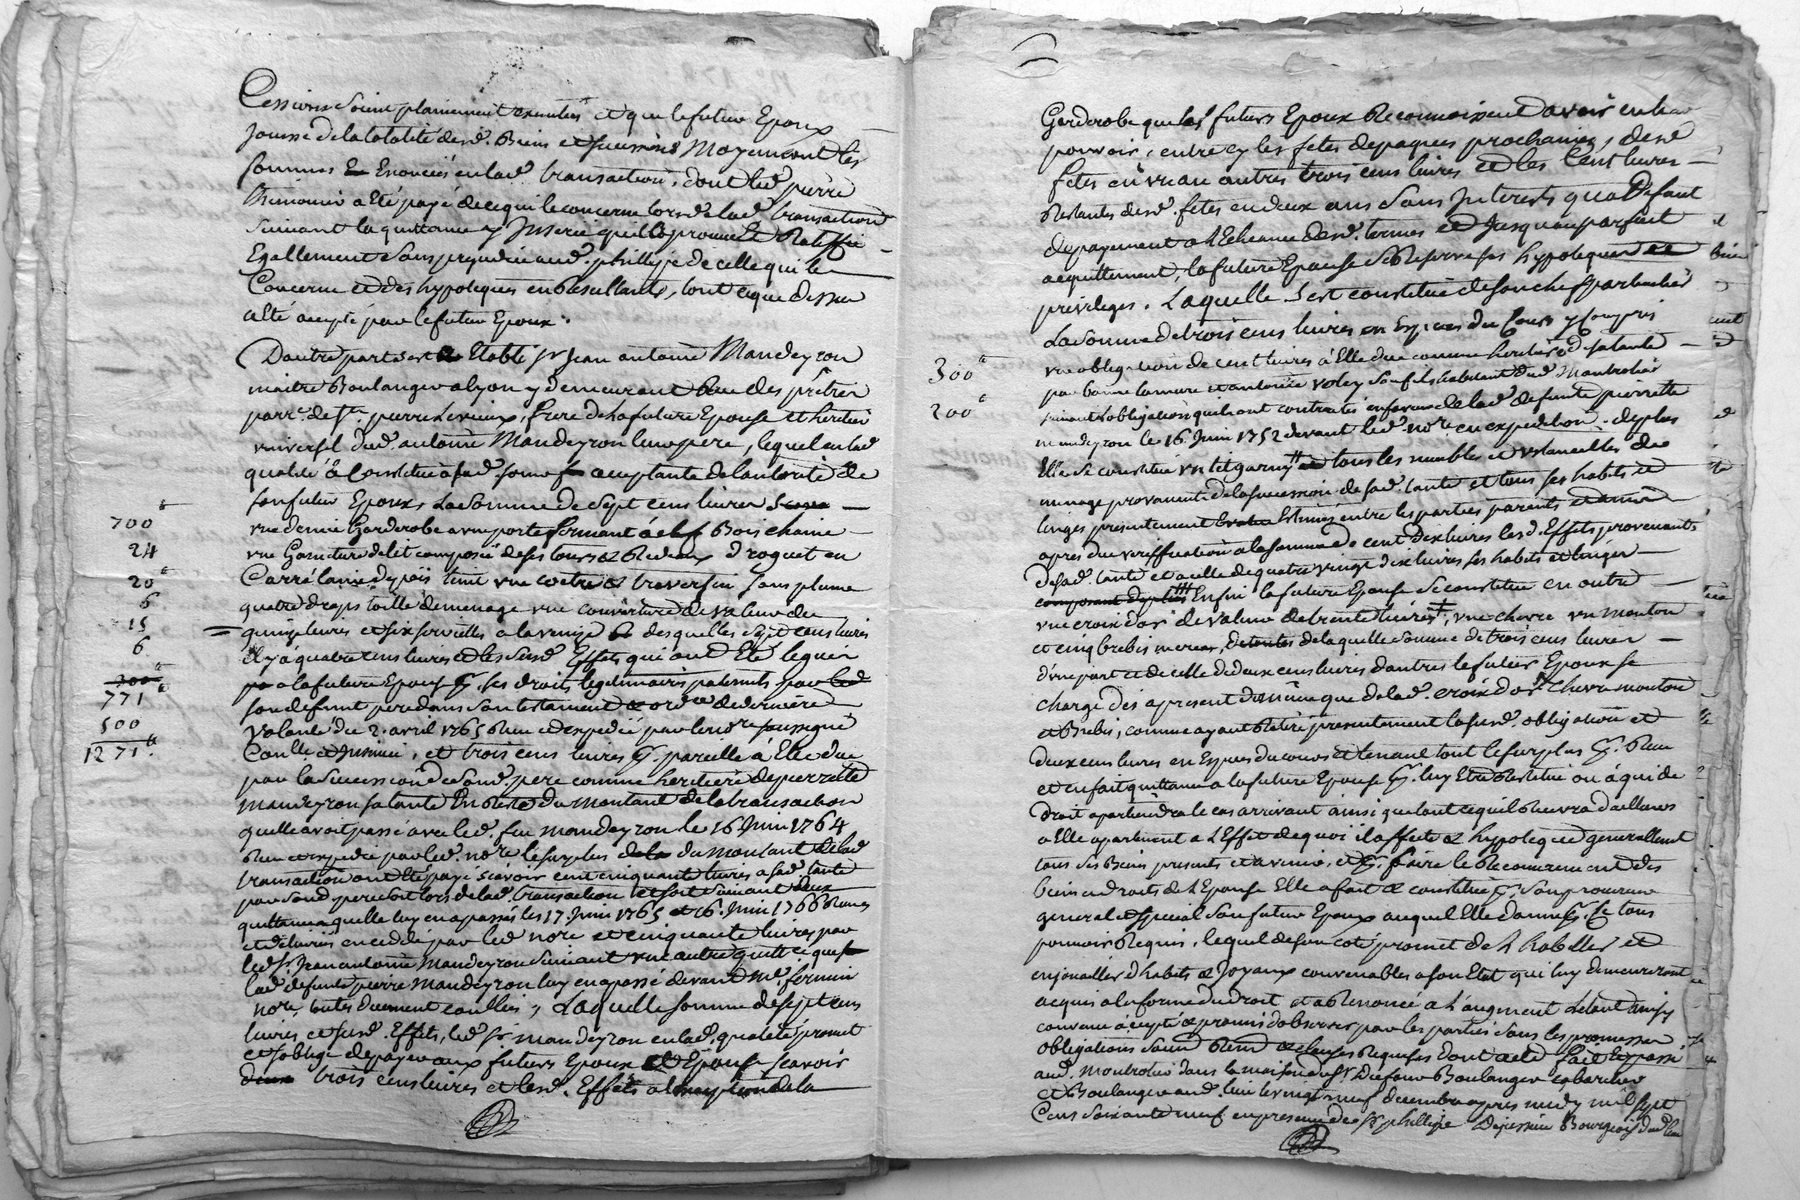 Cessions soient plainement executées et que le futur Epoux
jouisse de la totalité desd. Biens et successions Moyennant les
sommes Enoncées en lad. transaction, dont led. pierre
a Eté payé de ce qui le concerne lors de lad. transaction
suivant la quittance y Inserée qu'il promet Ratiffier
Egallement sans prejudice aud. phillipe de celle qui le
Concerne et des hypoteques en Resultants, tout ce que dessus
a Eté accepté par le futur Epoux.
D'autre part s'est Etabli sr Jean antoine Mandeyron
maitre Boulanger a lyon y demeurant Rue des prêtres
parr.e de St. pierre le vieux, frere de la future Epouse et heritier
universel dud. antoine Mandeyron leur pere, lequel en lad.
qualité a Constitué a sad. soeur acceptante de l'autorité de
son futur Epoux, La somme de sept cens livres
700 une garderobe a une porte fermant à clef Bois chaine
24 une Garniture de lit composée de ses tours & Rideaux droguet en
20 Carré laine depais teint une coetre & traversin sans plume
6 quatre draps toille de menage une couverture de valeur de
15 quinze livres et six serviettes a la venize desquelles sept cens livres
6 il y a quatre cens livres et les susd. Effets qui ont Eté legués
300 a la future Epouse p. ses droits legitimaires paternels par
771 son defunt pere dans son testament & ord.ce de derniere
500 volonté du 2. avril 1765 Reçu et expedié par le no.re soussigné
1271 Con.lle et Insinué, et trois cens livres p. pareille à Elle due
par la Succession de sond. pere comme heritiere de pierrette
mandeyron sa tante En Reste du Montant de la transaction
qu'elle avoit passé avec led. feu mandeyron le 16 Juin 1764
Reçu et expedié par led. no.re le surplus du Montant de lad.
transaction ont Eté payé scavoir cent cinquante livres a sad. tante
par sond. pere lors de lad. transaction et soit suivant deux
quittances qu'elle luy en a passé les 17. Juin 1765 et 16. Juin 1766 Reçues
et delivrées par led. no.re et cinquante livres par
led. sr. Jean antoine Mandeyron suivant une autre quitt.ce que
lad. defunte pierre Mandeyron luy en a passé devant Me. fermin
no.re, toutes duement Con.llées, Laquelle somme de sept cens
livres et susd. Effets, led. sr. mandeyron en lad. qualité promet
et s'oblige de payer aux futurs Epoux Epouse scavoir
trois cens livres et lesd. Effets a l'exception de la
Garderobe que les futurs Epoux Reconnoissent avoir en leur
pouvoir, entre cy les fetes de paques prochaines, desd.
fetes en un an autres trois cens livres et les Cent livres
Restantes desd. fetes en deux ans sans Interets qu'a Defaut
de payement a l'Echeance desd. termes et Jusqu'au parfait
acquittement, la future Epouse se Reserve ses hypoteques et
privileges. Laquelle s'est constitué de son chef particulier
La somme de trois cens livres en Especes du Cours y compris
300 une obligation de cent livres à Elle due comme heritiere de sa tante
par la mere et antoine voley son fils habitant dud. Montrotier
200 suivant l'obligation qu'ils ont contractée en faveur de lad. defunte pierrette
mandeyron le 16. Juin 1752 devant led. no.re en expedition. de plus
Elle se constitue un lit garny tous les meubles et ustancilles de
menage provenants de la succession de sad. tante et tous ses habits et
linges presentement Estimés entre les parties parents et amis
apres due veriffication a la somme de cent dix livres lesd. Effets provenants
de sad. tante et a celle de quatre vingt dix livres ses habits et linges
Enfin la future Epouse se constitue en outre
une croix d'or de valeur de trente livres, une chevre un mouton
et cinq brebis meres, de laquelle somme de trois cens livres
d'une part et de celle de deux cens livres d'autres le futur Epoux se
charge dès a present de même que de lad. croix d'or Chevre mouton
et Brebis, comme ayant Retiré presentement la susd. obligation et
deux cens livres en Especes du cours et tenant tout le surplus p. Reçu
et en fait quittance a la future Epouse p. luy Etre Restitué ou à qui de
Droit apartiendra le cas arrivant ainsi que tout ce qu'il Recevra d'ailleurs
a Elle apartenant a l'Effet de quoi il affecte & hypoteque generallement
tous ses Biens presents et avenir. et p. faire le Recouvrement des
biens et droits de l'Epouse Elle a fait & constitué p. son procureur
general et special son futur Epoux auquel Elle donne p. ce tous
pouvoirs Requis, lequel de son coté promet de l'habiller et
enjoailler d'habits & Joyaux convenables a son Etat qui luy demeureront
acquis a la forme du droit et a Renoncé a l'augment L'etant ainsy
convenu accepté & promis d'observer par les parties sous les promesses
obligations soum. Ren. & clauses Requises Dont acte fait et passé
aud. Montrotier dans la maison du sr. Boulanger cabaretier
et Boulanger aud. lieu le vingt neuf decembre apres midy mil sept
Cens soixante neuf en presence de sr phillipe Bourgeois dud. lieu